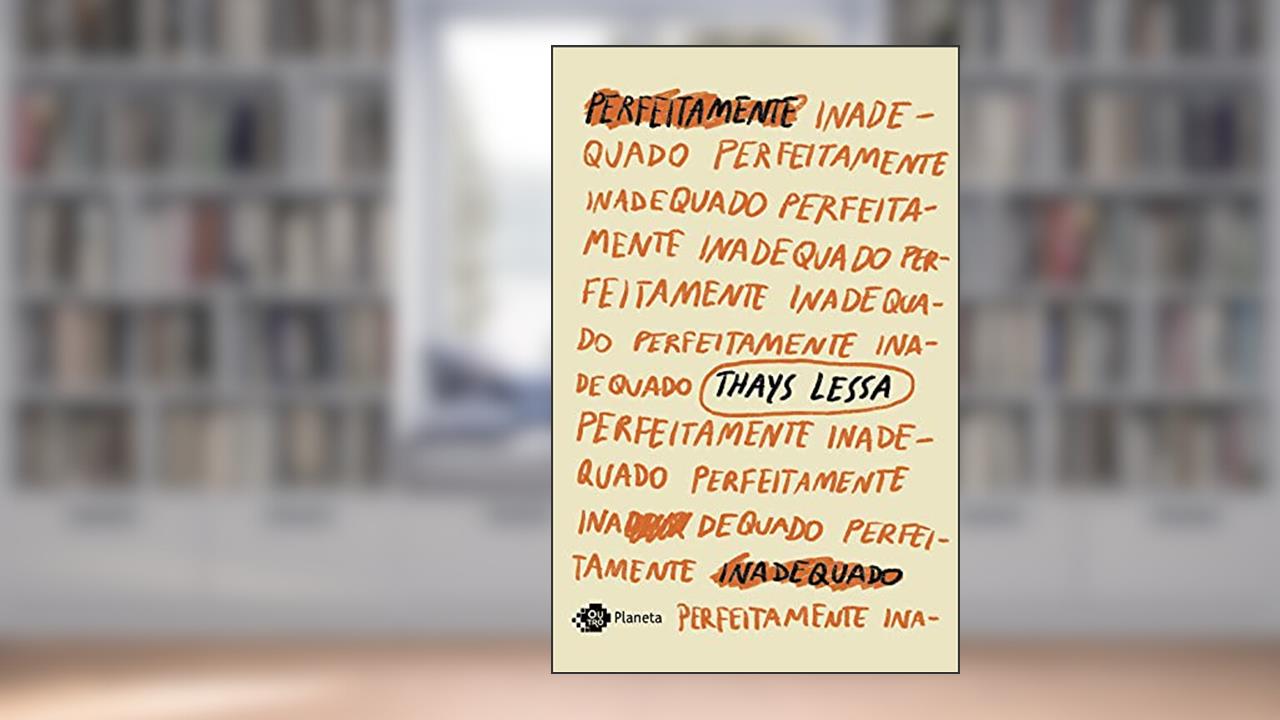 PERFEITAMENTE INADE-
QUADO PERFEITAMENTE
INADEQUADO PERFEITA-
MENTE INADEQUADO PER-
FEITAMENTE INADEQUA-
DO PERFEITAMENTE INA-
DEQUADO THAYS LESSA
PERFEITAMENTE INADE-
QUADO PERFEITAMENTE
INA DEQUADO PERFEI-
TAMENTE INADEQUADO
OUTRO Planeta PERFEITAMENTE INA-